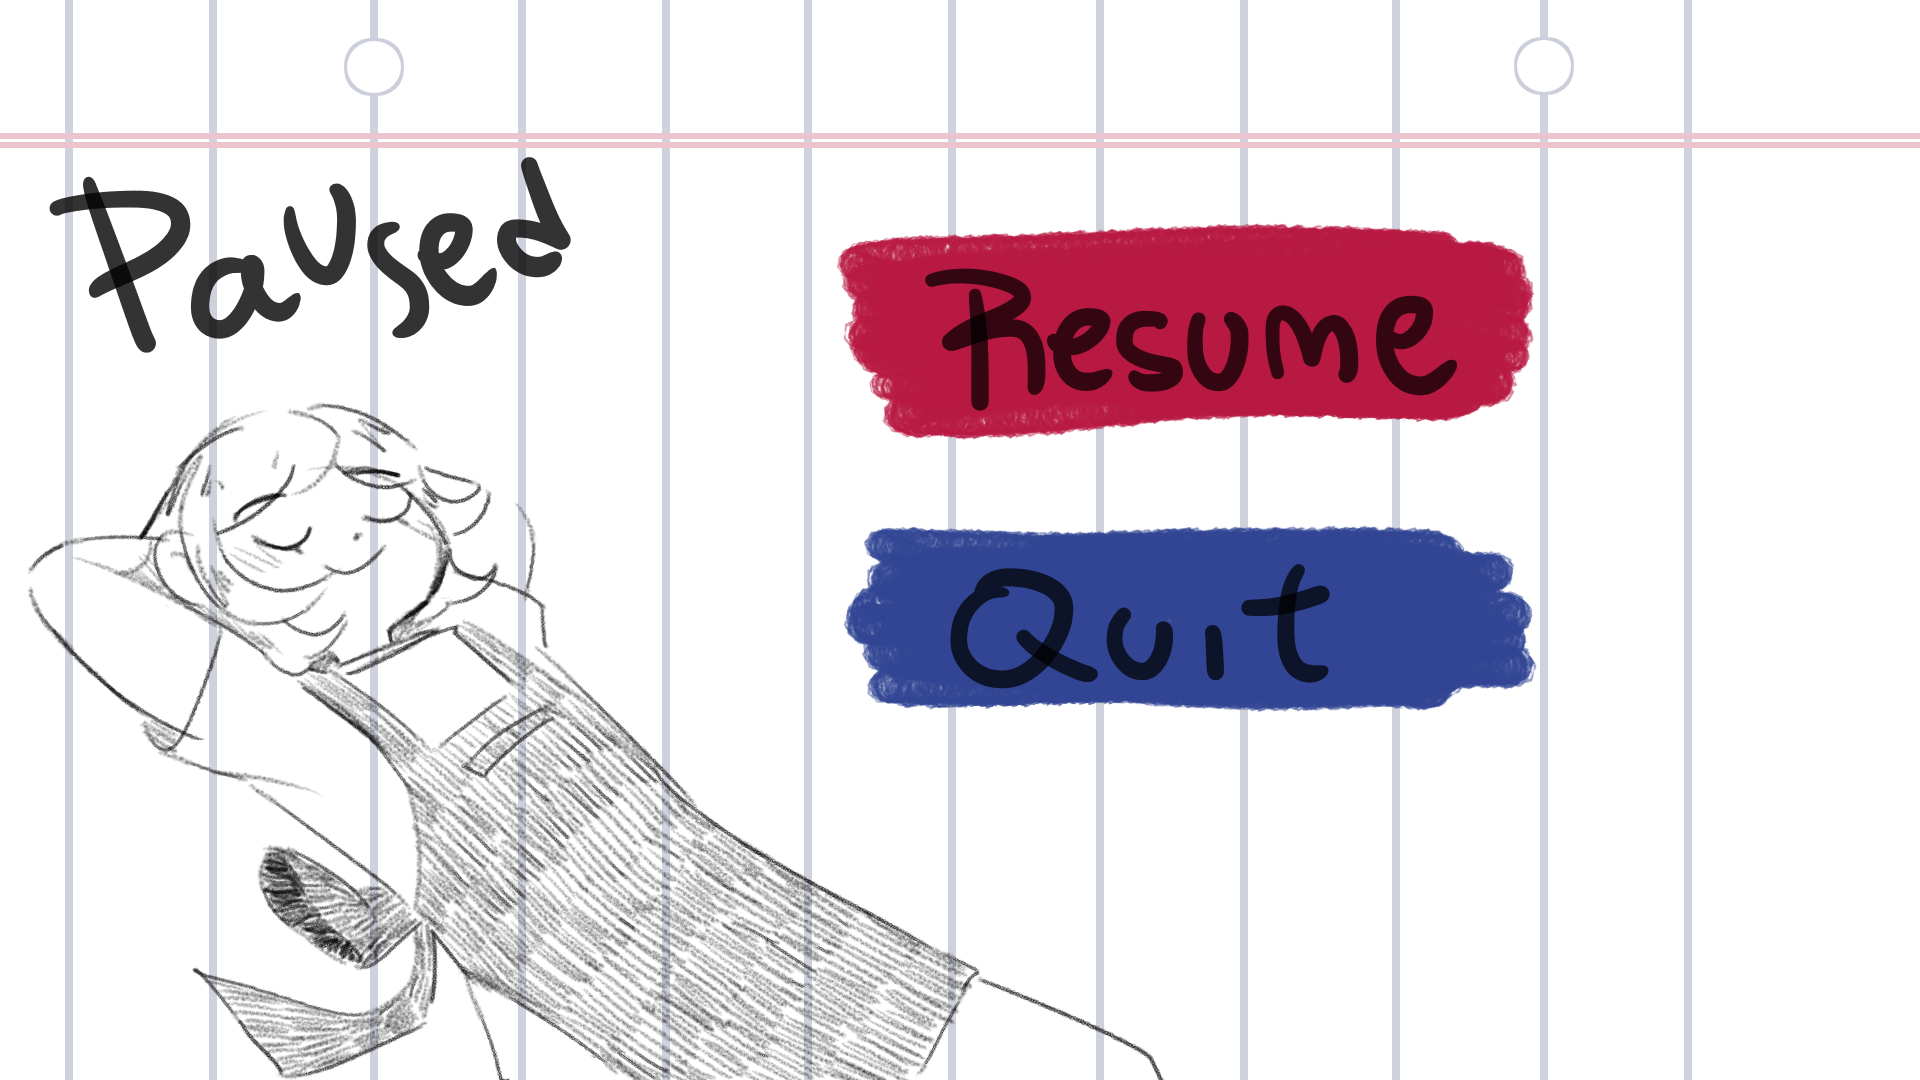 Paused
Resume
Quit